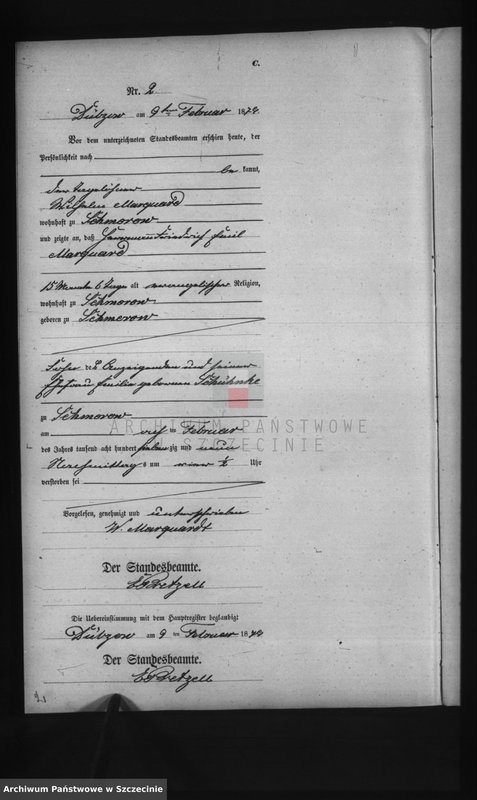 C.
Nr. 2
Dübzow am 9ten Februar 1879
Vor dem unterzeichneten Standesbeamten erschien heute, der
Persönlichkeit nach
be kannt,
der Tagelöhner
Wilhelm Marquard
wohnhaft zu Schmorow
und zeigte an, daß Hermann Friedrich Emil
Marquard
15 Monate 6 Tage alt evangelischer Religion,
wohnhaft zu Schmorow
geboren zu Schmorow
Sohn des Anzeigenden und seiner
Ehefrau Emilie geborenen Schühnke
zu Schmorow
am acht ten Februar
des Jahres tausend acht hundert sieben zig und neun
Nachmittag s um vier ½ Uhr
verstorben sei
Vorgelesen, genehmigt und unterschrieben
W. Marquardt
Der Standesbeamte.
Die Uebereinstimmung mit dem Hauptregister beglaubigt
Dübzow am 9 ten Februar 1879
Der Standesbeamte.
ARCHIWUM PAŃSTWOWE
W SZCZECINIE
Archiwum Państwowe w Szczecinie